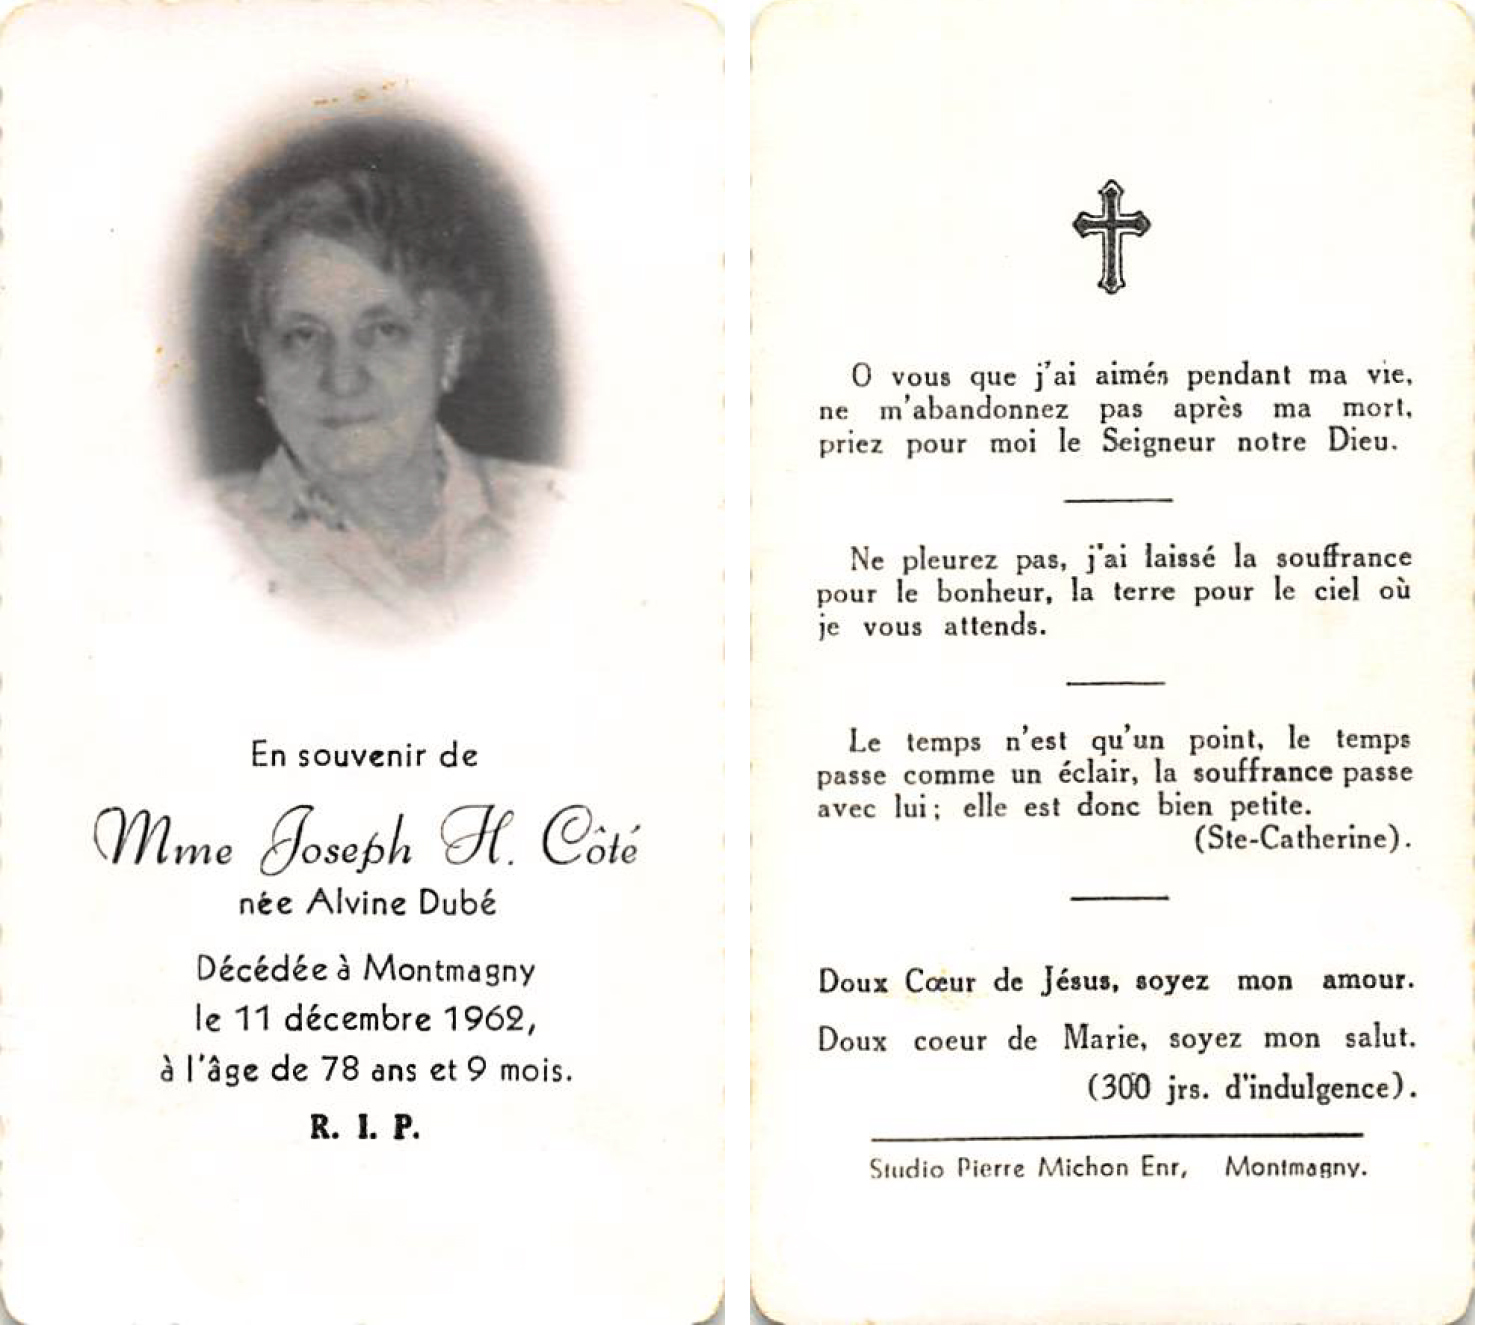 En souvenir de
Mme Joseph H. Côté
née Alvine Dubé
Décédée à Montmagny
le 11 décembre 1962,
à l'âge de 78 ans et 9 mois.
R. I. P.
O vous que j'ai aimés pendant ma vie,
ne m'abandonnez pas après ma mort,
priez pour moi le Seigneur notre Dieu.
Ne pleurez pas, j'ai laissé la souffrance
pour le bonheur, la terre pour le ciel où
je vous attends.
Le temps n'est qu'un point, le temps
passe comme un éclair, la souffrance passe
avec lui; elle est donc bien petite.
(Ste-Catherine).
Doux Cœur de Jésus, soyez mon amour.
Doux coeur de Marie, soyez mon salut.
(300 jrs. d'indulgence).
Studio Pierre Michon Enr, Montmagny.